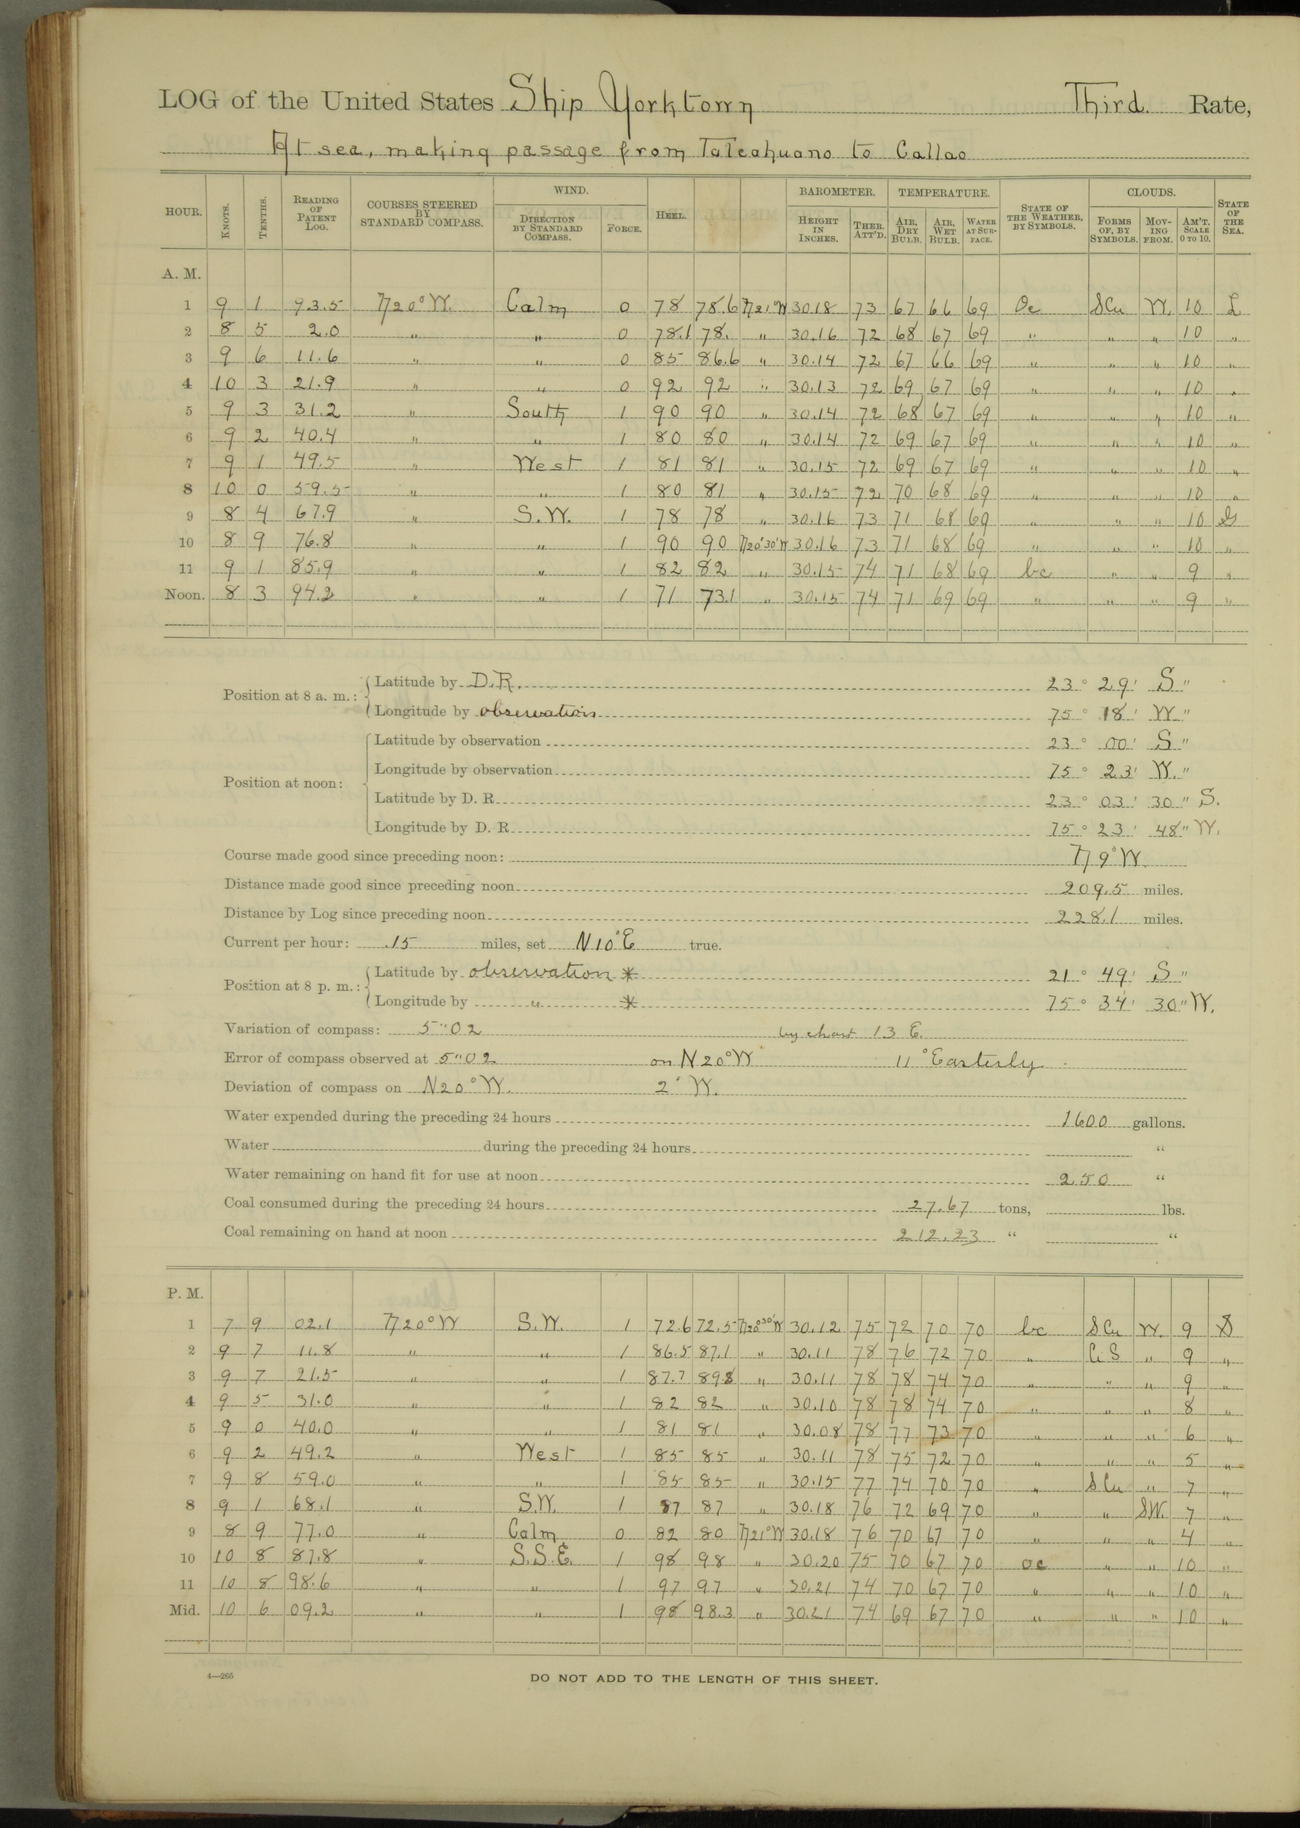 LOG of the United States Ship Yorktown Third Rate,
At sea, making passage from Talcahuano to Callao
HOUR. KNOTS. TENTHS. READING OF PATENT LOG. COURSES STEERED BY STANDARD COMPASS. WIND. DIRECTION BY STANDARD COMPASS. FORCE. HEEL. BAROMETER. HEIGHT IN INCHES. THER. ATT'D. TEMPERATURE. AIR, DRY BULB. AIR, WET BULB. WATER AT SURFACE. STATE OF THE WEATHER, BY SYMBOLS. CLOUDS. FORMS OF, BY SYMBOLS. MOVING FROM. AM'T. SCALE 0 TO 10. STATE OF THE SEA.
A. M.
1 9 1 93.5 N20°W. Calm 0 78 78.6 N21°W 30.18 73 67 66 69 Oc SCu W. 10 L
2 8 5 2.0 " " 0 78.1 78. " 30.16 72 68 67 69 " " " 10 "
3 9 6 11.6 " " 0 85 86.6 " 30.14 72 67 66 69 " " " 10 "
4 10 3 21.9 " " 0 92 92 " 30.13 72 69 67 69 " " " 10 "
5 9 3 31.2 " South 1 90 90 " 30.14 72 68 67 69 " " " 10 "
6 9 2 40.4 " " 1 80 80 " 30.14 72 69 67 69 " " " 10 "
7 9 1 49.5 " West 1 81 81 " 30.15 72 69 67 69 " " " 10 "
8 10 0 59.5 " " 1 80 81 " 30.15 72 70 68 69 " " " 10 "
9 8 4 67.9 " S.W. 1 78 78 " 30.16 73 71 68 69 " " " 10
10 8 9 76.8 " " 1 90 90 N20°30'W 30.16 73 71 68 69 " " " 10 "
11 9 1 85.9 " " 1 82 82 " 30.15 74 71 68 69 bc " " 9 "
Noon. 8 3 94.2 " " 1 71 73.1 " 30.15 74 71 69 69 " " " 9 "
Position at 8 a. m.: Latitude by D.R. 23° 29' S "
Longitude by observation 75° 18' W "
Position at noon: Latitude by observation 23° 00' S "
Longitude by observation 75° 23' W. "
Latitude by D. R. 23° 03' 30" S.
Longitude by D. R. 75° 23' 48" W.
Course made good since preceding noon: N 9° W
Distance made good since preceding noon 209.5 miles.
Distance by Log since preceding noon 228.1 miles.
Current per hour: .15 miles, set N10°E true.
Position at 8 p. m.: Latitude by observation * 21° 49' S "
Longitude by " * 75° 34' 30" W.
Variation of compass: 5"02 by chart 13 E.
Error of compass observed at 5"02 on N20°W 11° Easterly
Deviation of compass on N20°W. 2° W.
Water expended during the preceding 24 hours 1600 gallons.
Water during the preceding 24 hours "
Water remaining on hand fit for use at noon 250 "
Coal consumed during the preceding 24 hours 27.67 tons, lbs.
Coal remaining on hand at noon 212.23 " "
P. M.
1 7 9 02.1 N20°W S.W. 1 72.6 72.5 N20°30'W 30.12 75 72 70 70 bc SCu W. 9 S
2 9 7 11.8 " " 1 86.5 87.1 " 30.11 78 76 72 70 " Ci S " 9 "
3 9 7 21.5 " " 1 87.7 89.8 " 30.11 78 78 74 70 " " " 9 "
4 9 5 31.0 " " 1 82 82 " 30.10 78 78 74 70 " " " 8 "
5 9 0 40.0 " " 1 81 81 " 30.08 78 77 73 70 " " " 6 "
6 9 2 49.2 " West 1 85 85 " 30.11 78 75 72 70 " " " 5 "
7 9 8 59.0 " " 1 85 85 " 30.15 77 74 70 70 " SCu " 7 "
8 9 1 68.1 " S.W. 1 87 87 " 30.18 76 72 69 70 " " SW. 7 "
9 8 9 77.0 " Calm 0 82 80 N21°W 30.18 76 70 67 70 " " " 4 "
10 10 8 87.8 " S.S.E. 1 98 98 " 30.20 75 70 67 70 oc " " 10 "
11 10 8 98.6 " " 1 97 97 " 30.21 74 70 67 70 " " " 10 "
Mid. 10 6 09.2 " " 1 98 98.3 " 30.21 74 69 67 70 " " " 10 "
4—265
DO NOT ADD TO THE LENGTH OF THIS SHEET.